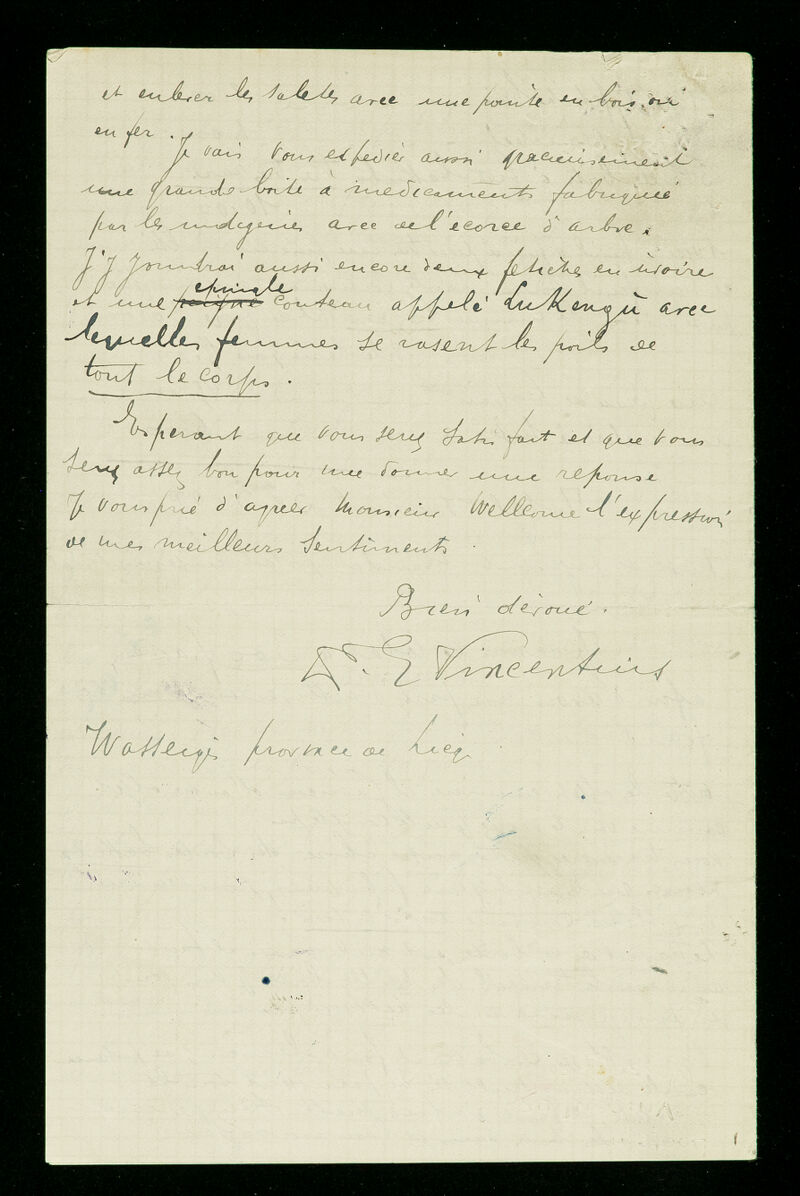 et enlever les saletes avec une pointe en bois ou
en fer.
Je vais vous expedier aussi gracieusement
une grande boite à medicaments fabriquée
par les indigenes avec de l'écorce d'arbre.
J'y joindrai aussi encore deux fetiches en ivoire
epingle
et une couteau appelé Lukengü avec
lequelles femmes se rasent les poils de
tout le corps.
Esperant que vous serez satisfait et que vous
serez assez bon pour me donner une reponse
Je vous prie d'agreer Monsieur Wellcome l'expression
de mes meilleurs sentiments.
Bien dévoué.
Dr. E Vincentius
Wasseiges province de Liege